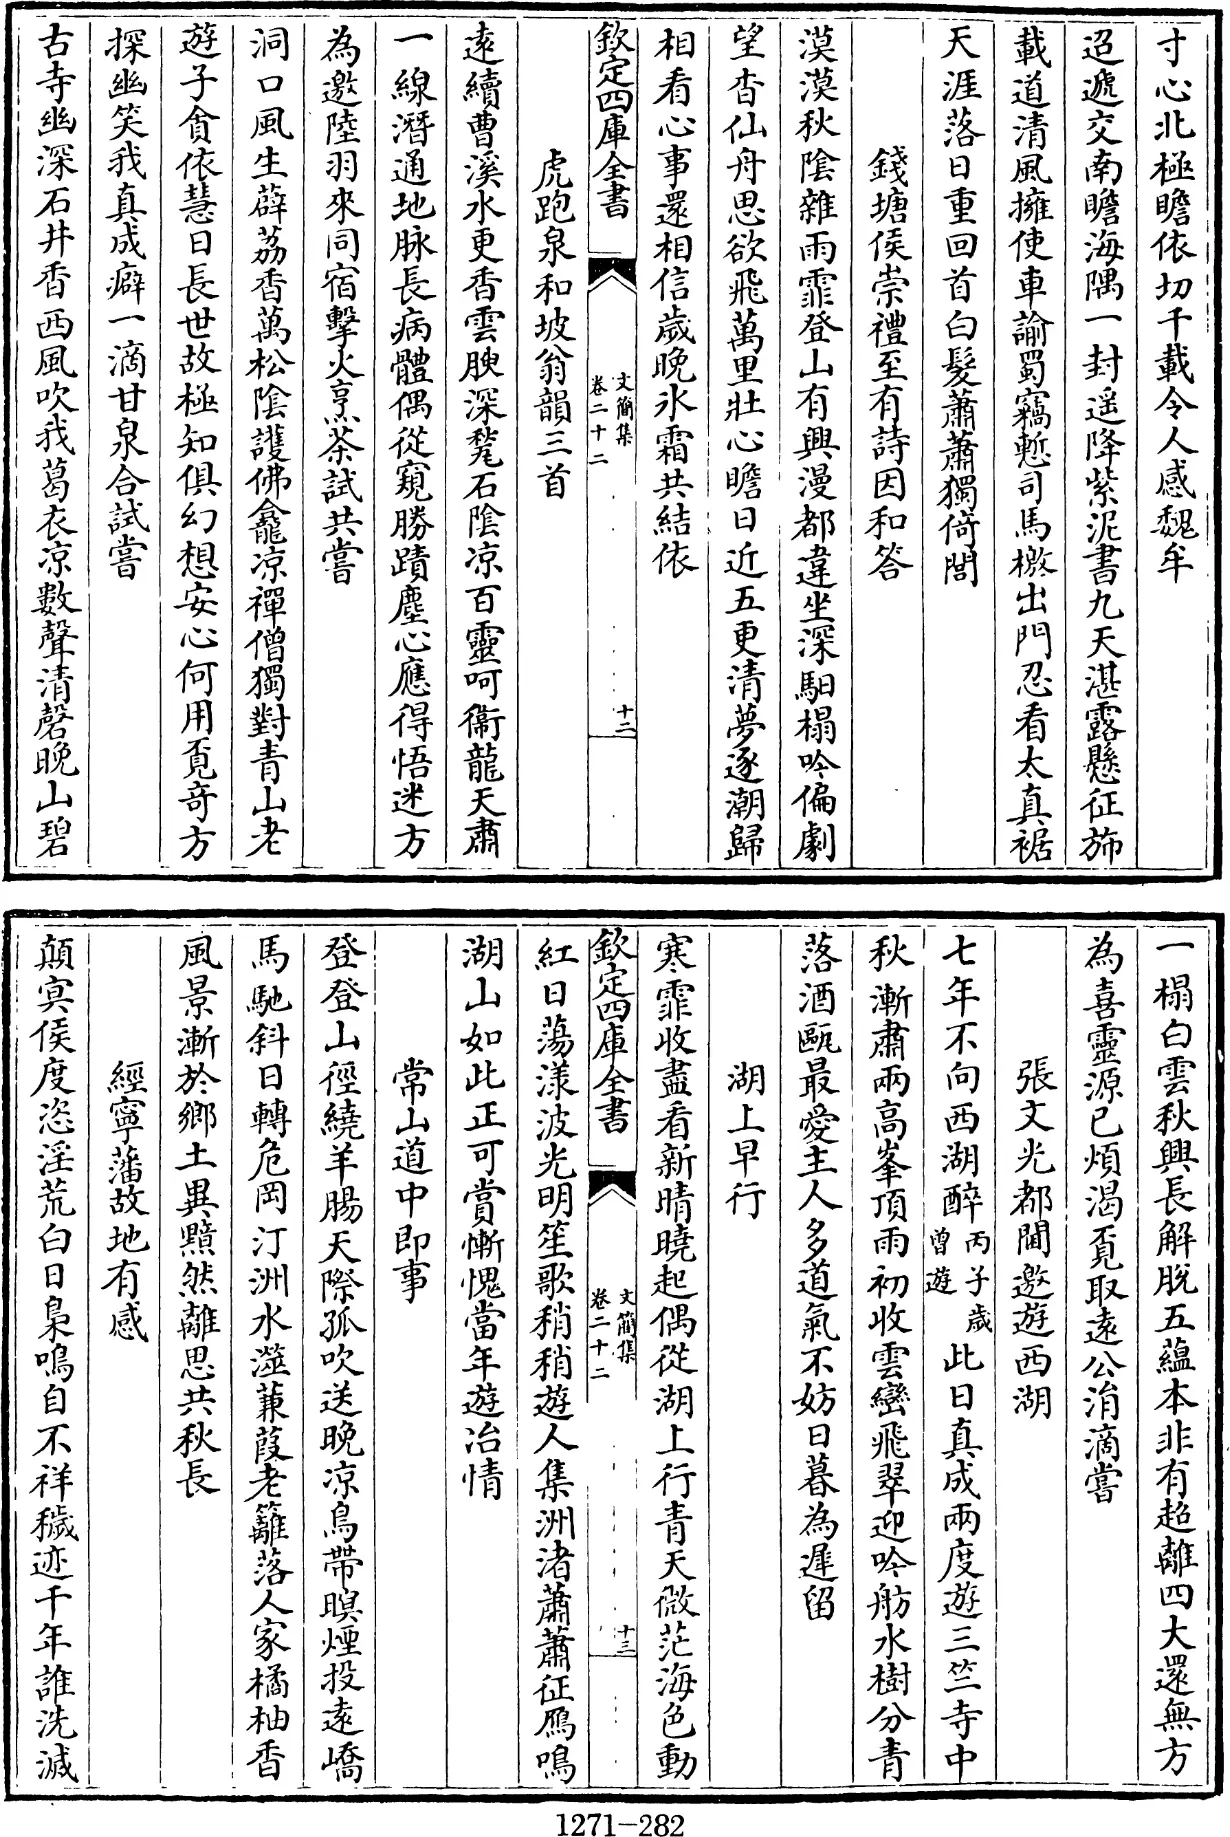 寸心北極瞻依切千載令人感魏牟
迢遞交南瞻海隅一封遥降紫泥書九天湛露懸征斾
載道清風擁使車諭蜀竊慙司馬檄出門忍看太真裾
天涯落日重回首白髮蕭蕭獨倚閭
錢塘侯崇禮至有詩因和答
漠漠秋陰雜雨霏登山有興漫都違坐深馹榻吟偏劇
望杳仙舟思欲飛萬里壯心瞻日近五更清夢逐潮歸
相看心事還相信歲晚氷霜共結依
欽定四庫全書
文簡集
卷二十二
十二
虎跑泉和坡翁韻三首
逺續曹溪水更香雲腴深甃石陰凉百靈呵衞龍天肅
一線潛通地脉長病體偶從窺勝蹟塵心應得悟迷方
為邀陸羽來同宿擊火烹茶試共嘗
洞口風生薜荔香萬松陰護佛龕凉禪僧獨對青山老
遊子貪依慧日長世故極知俱幻想安心何用覔奇方
探幽笑我真成癖一滴甘泉合試嘗
古寺幽深石井香西風吹我葛衣凉數聲清磬晚山碧
一榻白雲秋興長解脫五蘊本非有超離四大還無方
為喜靈源已煩渴覔取逺公涓滴嘗
張文光都閫邀遊西湖
七年不向西湖醉丙子歲曽遊此日真成兩度遊三竺寺中
秋漸肅兩高峯頂雨初收雲巒飛翠迎吟舫水樹分青
落酒甌最愛主人多道氣不妨日暮為遲留
湖上早行
寒霏收盡看新晴曉起偶從湖上行青天微茫海色動
欽定四庫全書
文簡集
卷二十二
十三
紅日蕩漾波光明笙歌稍稍遊人集洲渚蕭蕭征鴈鳴
湖山如此正可賞慚愧當年遊冶情
常山道中即事
登登山徑繞羊腸天際孤吹送晚凉鳥帶暝煙投逺嶠
馬馳斜日轉危岡汀洲水澁蒹葭老籬落人家橘柚香
風景漸於鄉土異黯然離思共秋長
經寧藩故地有感
顛㝠侯度恣淫荒白日梟鳴自不祥穢迹千年誰洗滅
1271-282